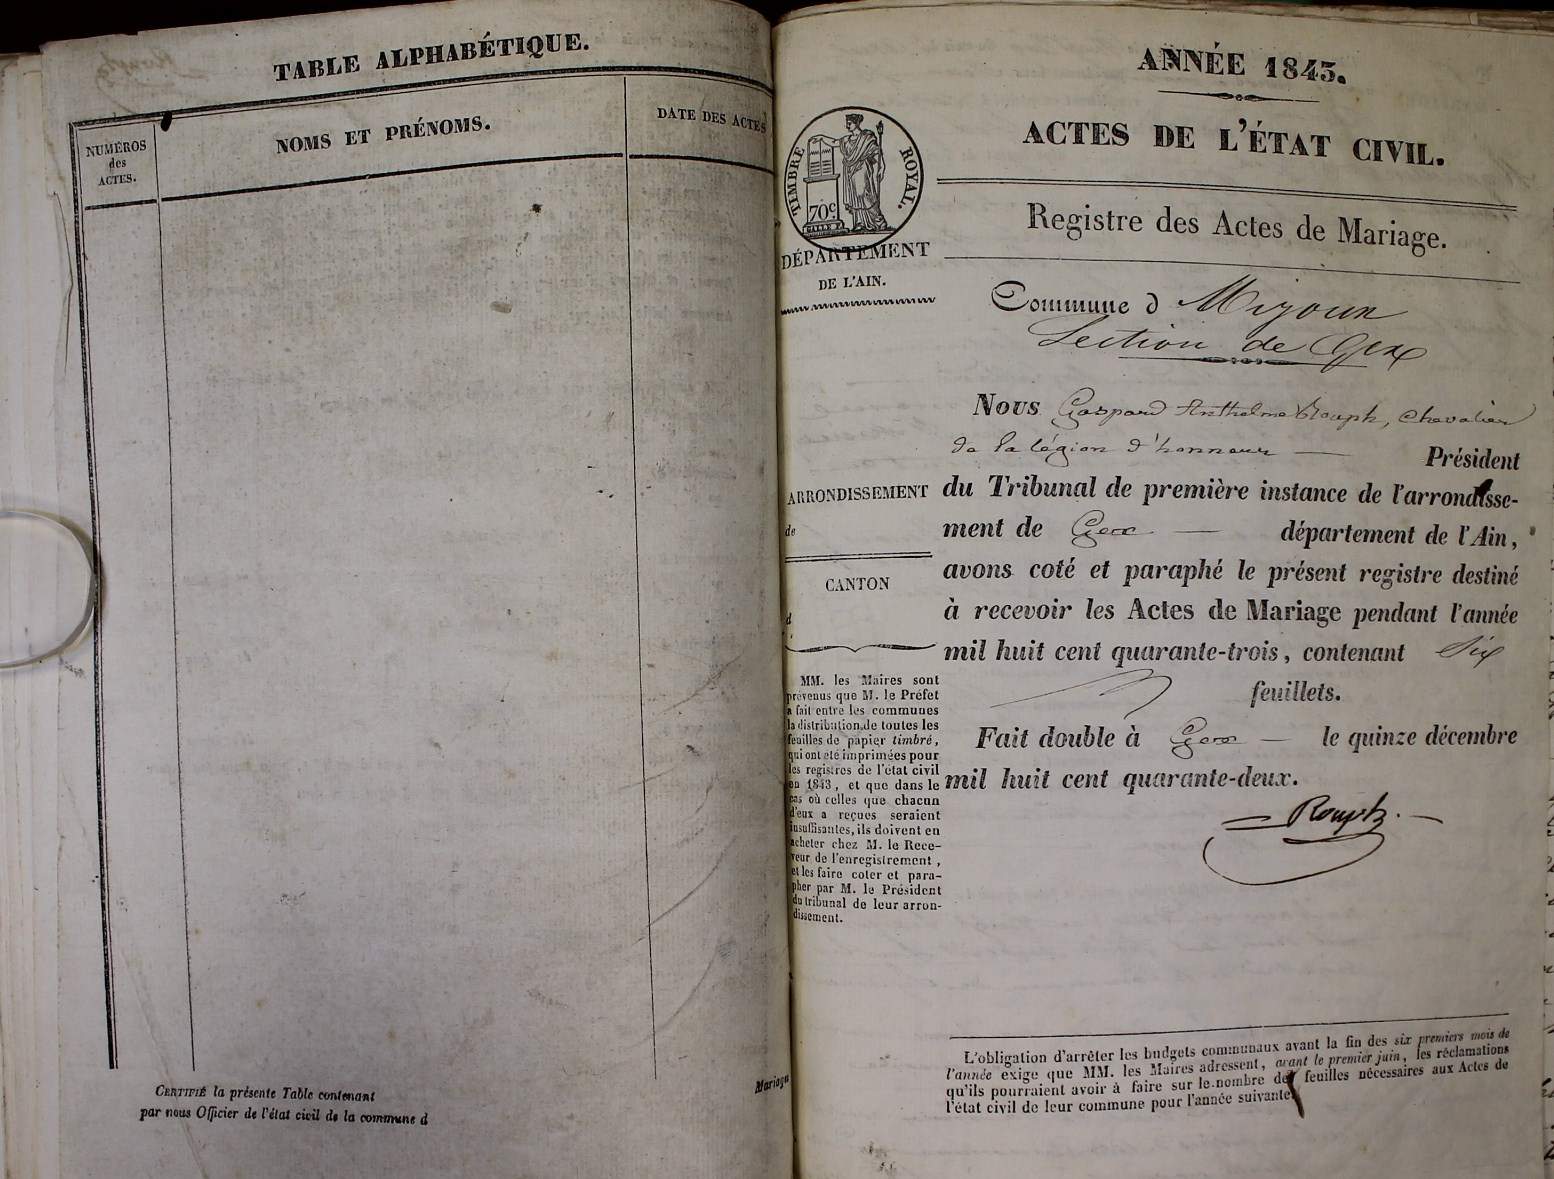 TABLE ALPHABÉTIQUE.
NUMÉROS
des
ACTES.
NOMS ET PRÉNOMS.
DATE DES ACTES
CERTIFIÉ la présente Table contenant
par nous Officier de l'état civil de la commune d
Mariage
ANNÉE 1843.
ACTES DE L'ÉTAT CIVIL.
TIMBRE ROYAL.
70c
DÉPARTEMENT
DE L'AIN.
Registre des Actes de Mariage.
Commune d Mijoux
Section de Gex
Nous Gaspard Anthelme Rouph, chevalier
de la légion d'honneur — Président
ARRONDISSEMENT
de
CANTON
d
du Tribunal de première instance de l'arrondisse-
ment de Gex — département de l'Ain,
avons coté et paraphé le présent registre destiné
à recevoir les Actes de Mariage pendant l'année
mil huit cent quarante-trois, contenant Six
feuillets.
Fait double à Gex — le quinze décembre
mil huit cent quarante-deux.
Rouph
MM. les Maires sont
prévenus que M. le Préfet
a fait entre les communes
la distribution de toutes les
feuilles de papier timbré,
qui ont été imprimées pour
les registres de l'état civil
en 1843, et que dans le
cas où celles que chacun
d'eux a reçues seraient
insuffisantes, ils doivent en
acheter chez M. le Rece-
veur de l'enregistrement,
et les faire coter et para-
pher par M. le Président
du tribunal de leur arron-
dissement.
L'obligation d'arrêter les budgets communaux avant la fin des six premiers mois de
l'année exige que MM. les Maires adressent, avant le premier juin, les réclamations
qu'ils pourraient avoir à faire sur le nombre de feuilles nécessaires aux Actes de
l'état civil de leur commune pour l'année suivante.